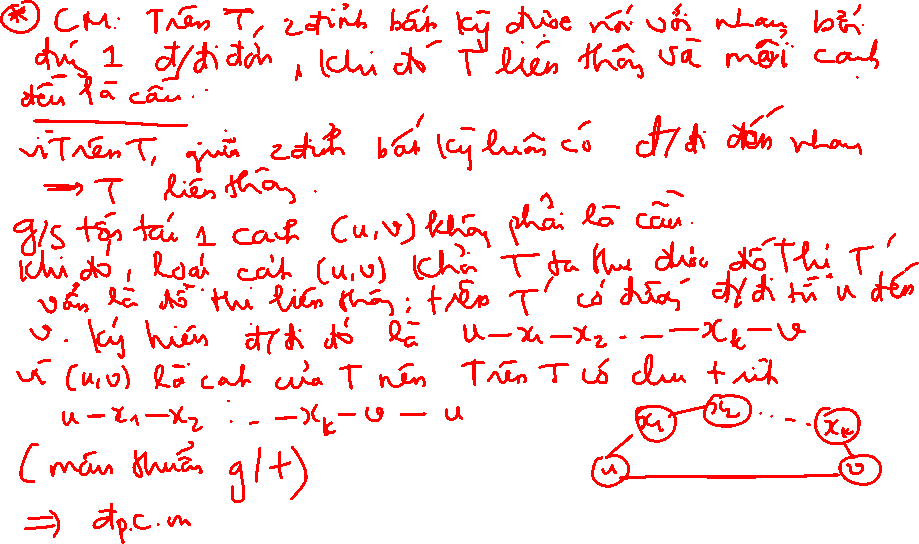 * CM: Trên T, 2 đỉnh bất kỳ được nối với nhau bởi
đúng 1 đ/đi đơn, khi đó T liên thông và mỗi cạnh
đều là cầu.
vì Trên T, giữa 2 đỉnh bất kỳ luôn có đ/đi đến nhau
→ T liên thông.
g/s tồn tại 1 cạnh (u,v) không phải là cầu.
Khi đó, loại cạnh (u,v) khỏi T ta thu được đồ Thị T'
vẫn là đồ thị liên thông; trên T' có đường đ/đi từ u đến
v. Ký hiệu đ/đi đó là u-x1-x2...-xk-v
vì (u,v) là cạnh của T nên Trên T có chu trình
u-x1-x2...-xk-v-u
(mâu thuẫn g/t)
⇒ đp.c.m
x1 x2 ... xk
u v